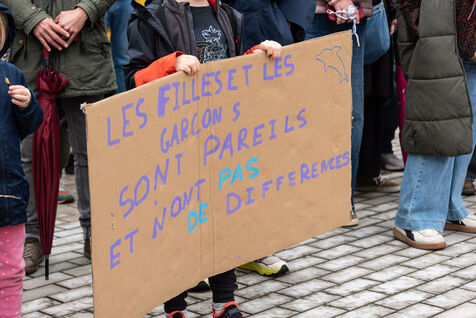 LES FILLES ET LES
GARÇONS
SONT PAREILS
ET N'ONT PAS
DE DIFFERENCES